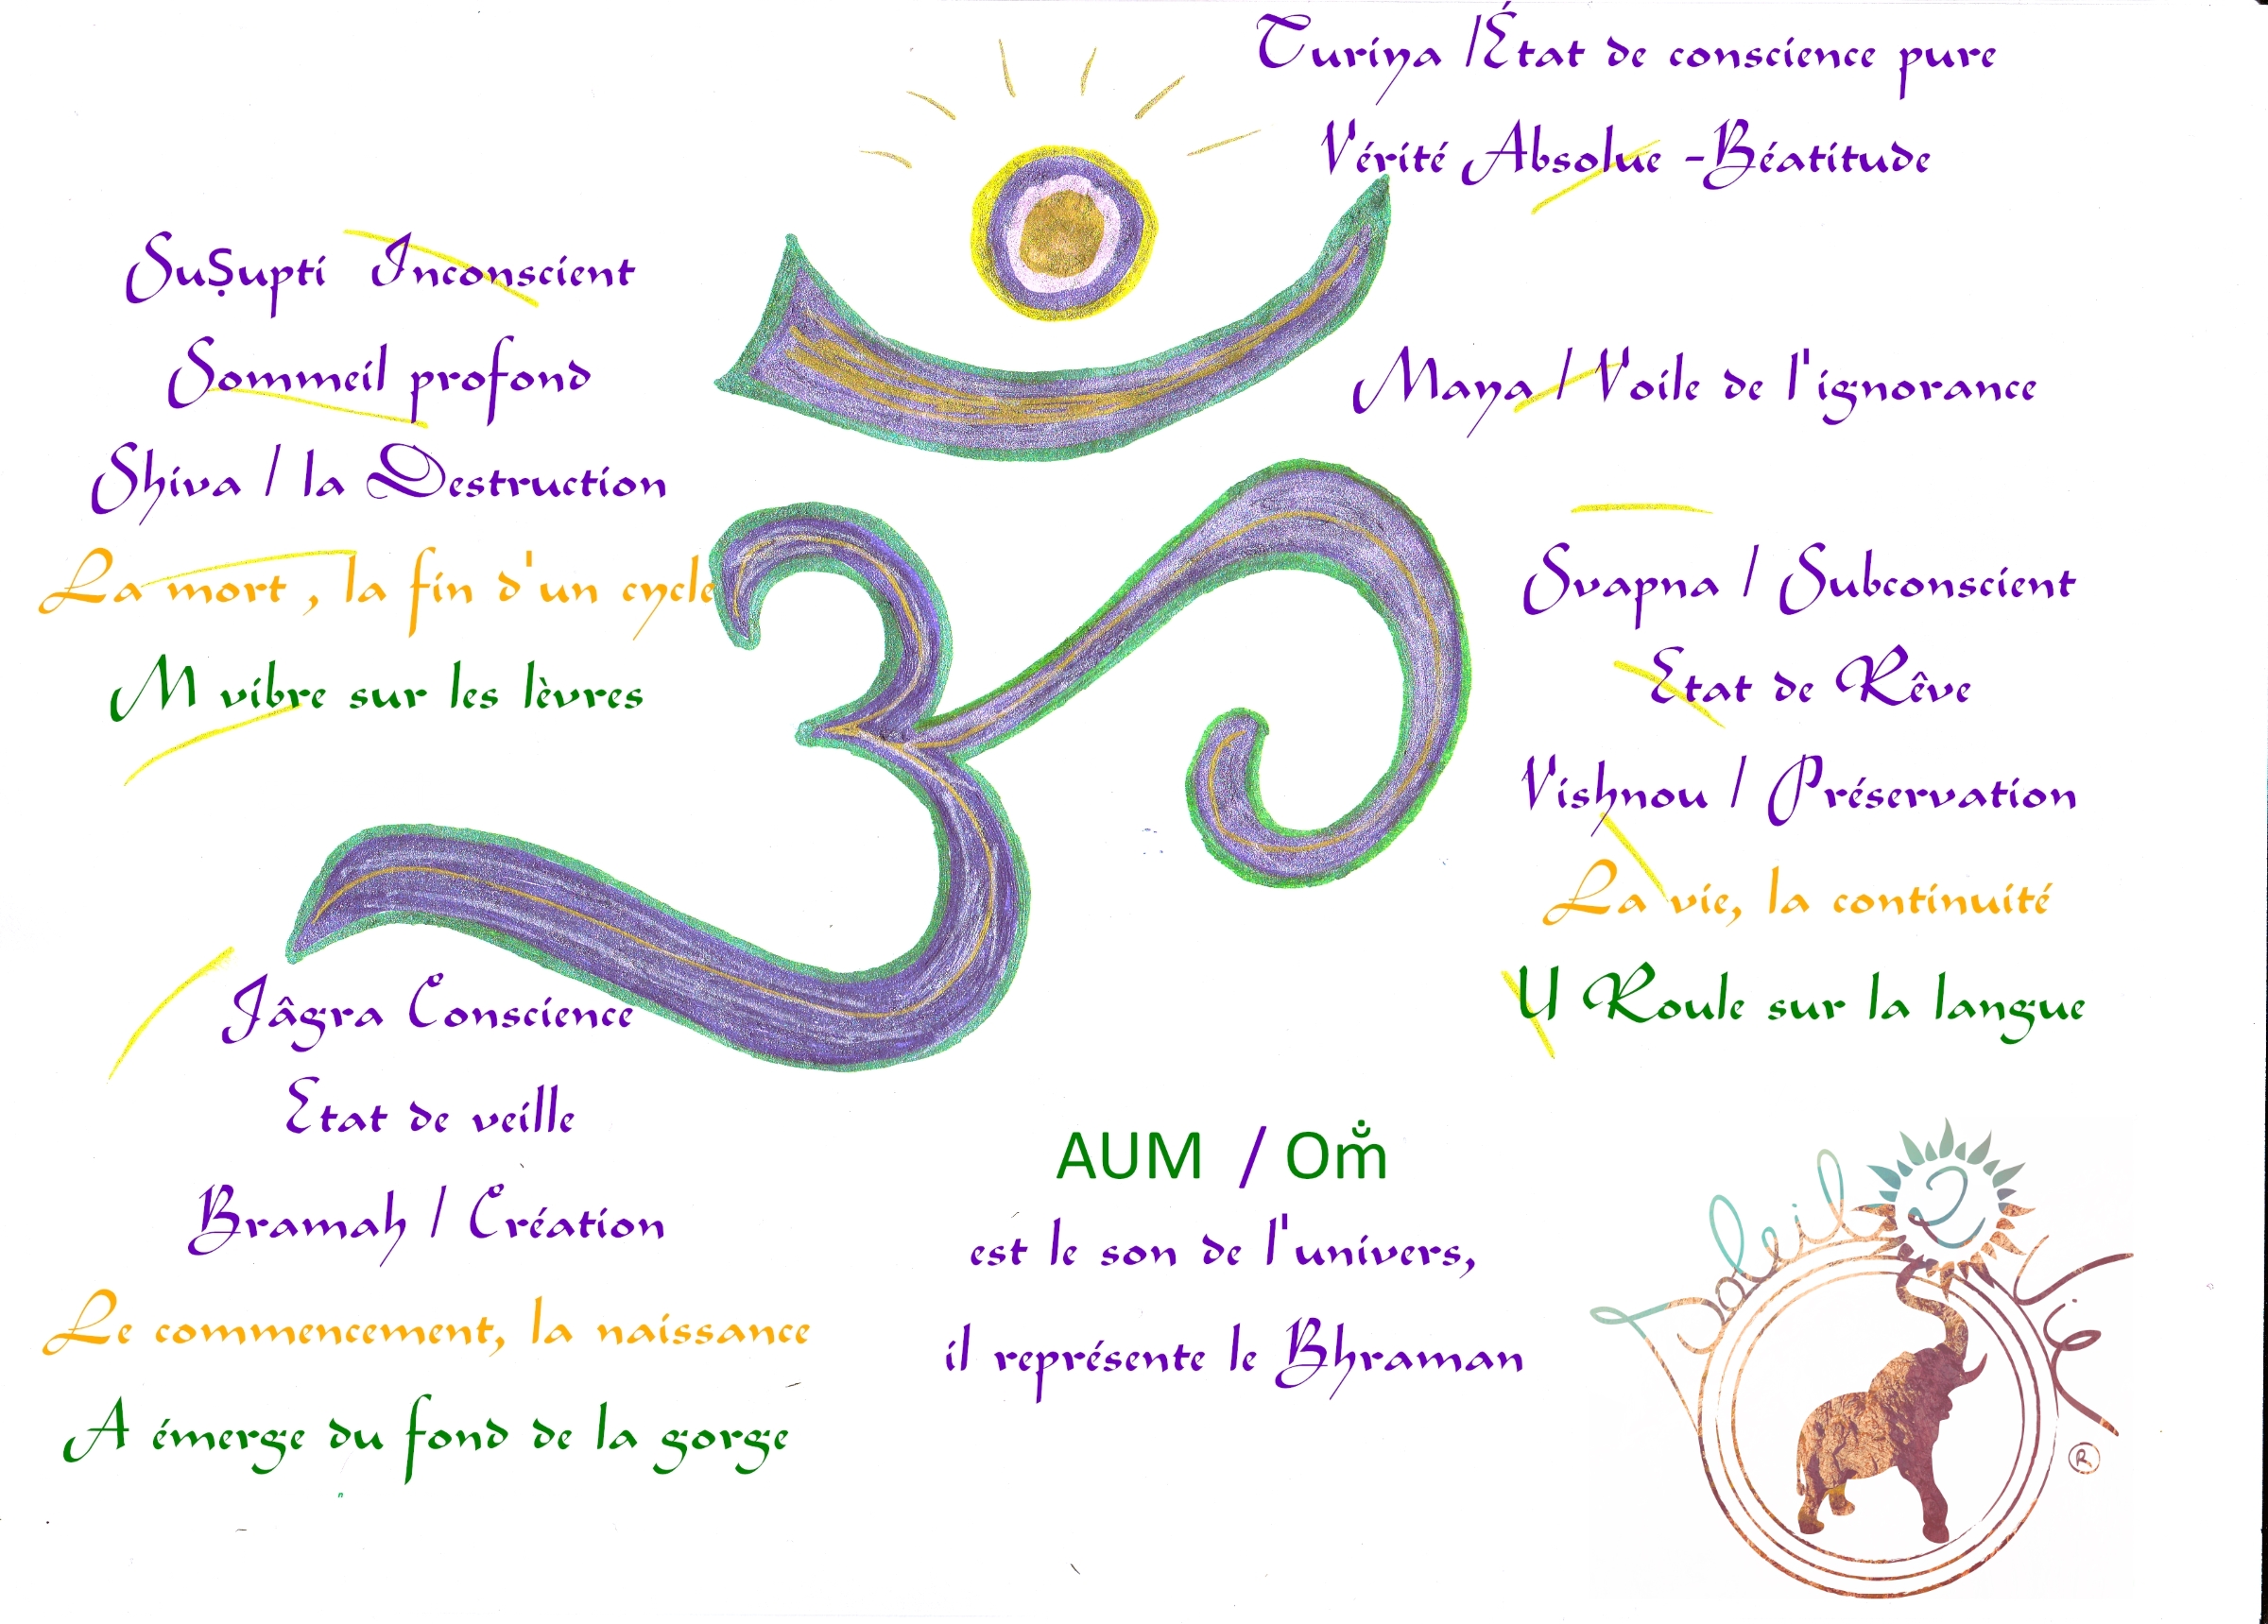 Turiya /État de conscience pure
Vérité Absolue -Béatitude
SuṢupti Inconscient
Sommeil profond
Shiva / la Destruction
La mort , la fin d'un cycle
M vibre sur les lèvres
Maya / Voile de l'ignorance
Svapna / Subconscient
Etat de Rêve
Vishnou / Préservation
La vie, la continuité
U Roule sur la langue
Jâgra Conscience
Etat de veille
Bramah / Création
Le commencement, la naissance
A émerge du fond de la gorge
AUM / Om̐
est le son de l'univers,
il représente le Bhraman
Soleil 2 Vie
®